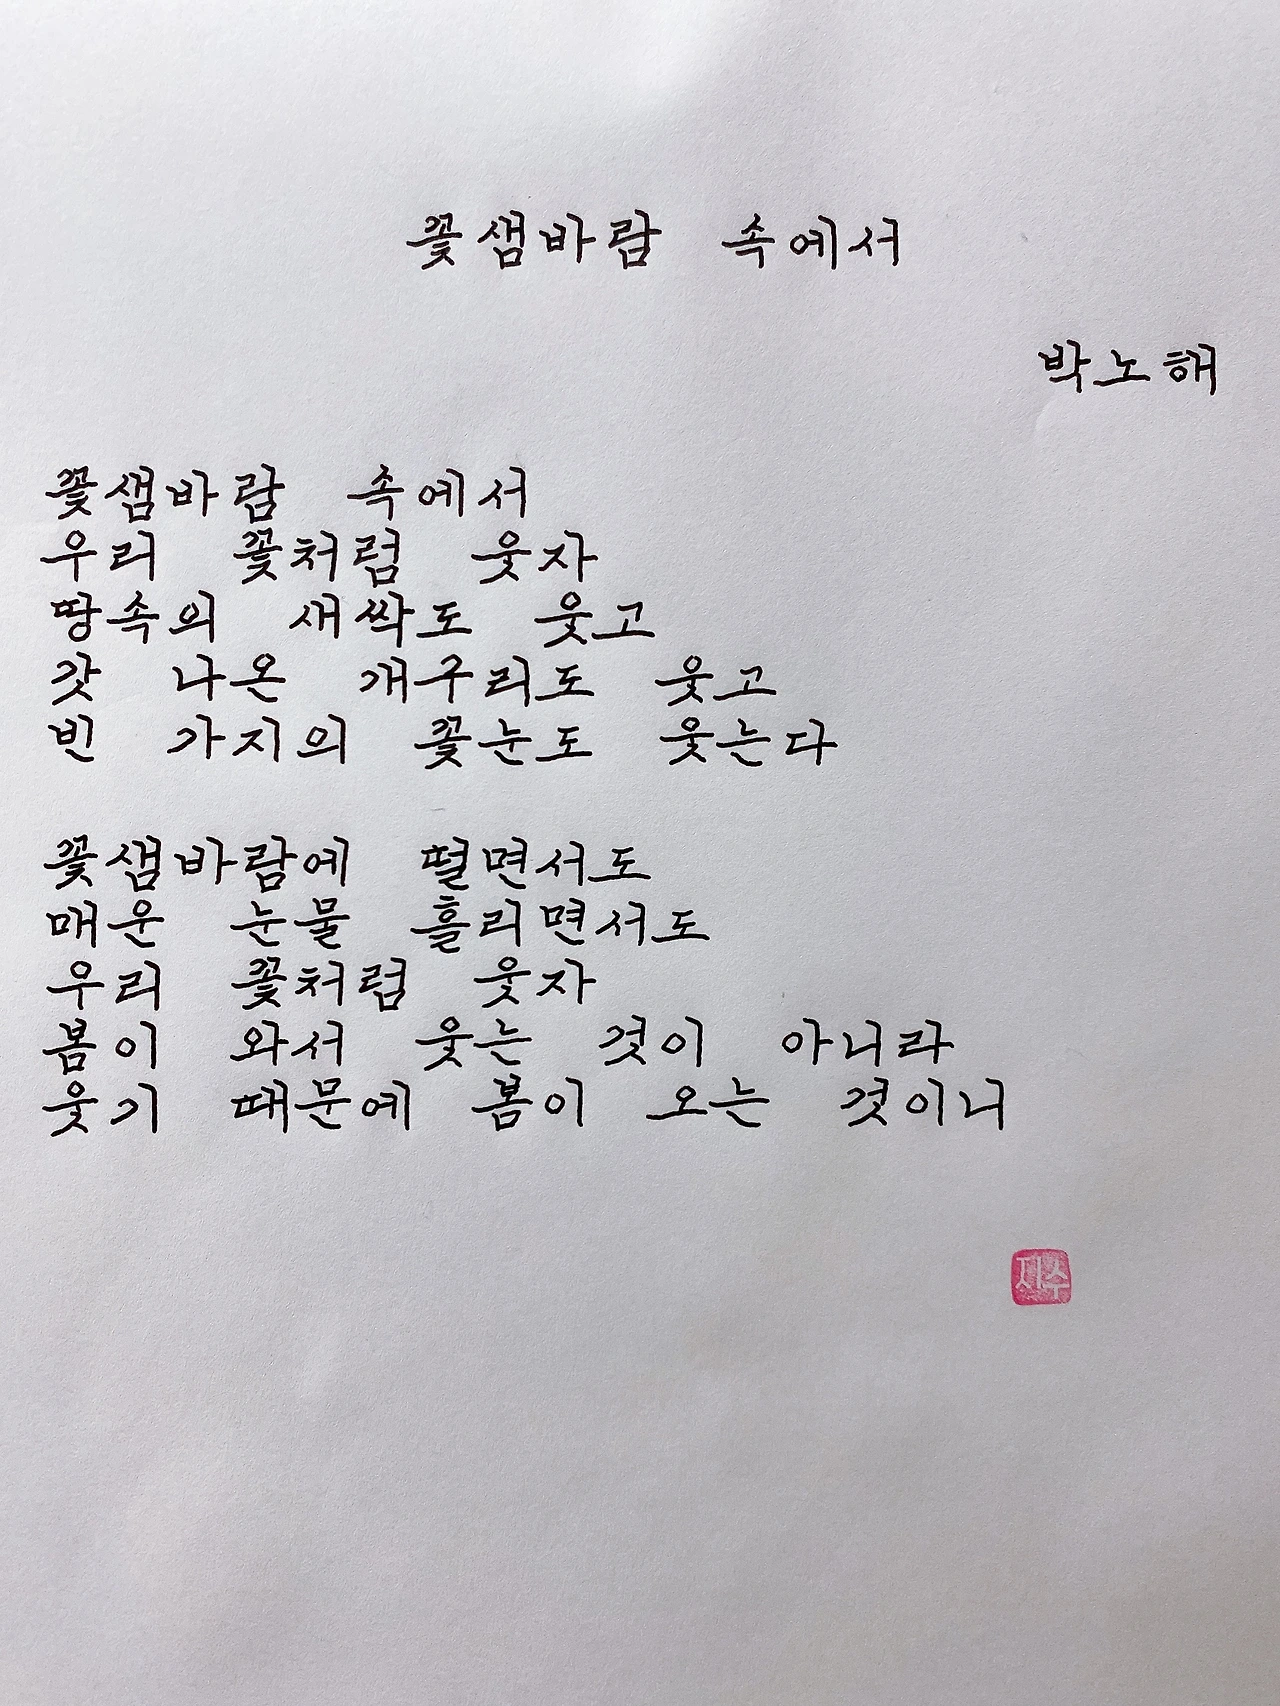 꽃샘바람 속에서
박노해
꽃샘바람 속에서
우리 꽃처럼 웃자
땅속의 새싹도 웃고
갓 나온 개구리도 웃고
빈 가지의 꽃눈도 웃는다
꽃샘바람에 떨면서도
매운 눈물 흘리면서도
우리 꽃처럼 웃자
봄이 와서 웃는 것이 아니라
웃기 때문에 봄이 오는 것이니
지수